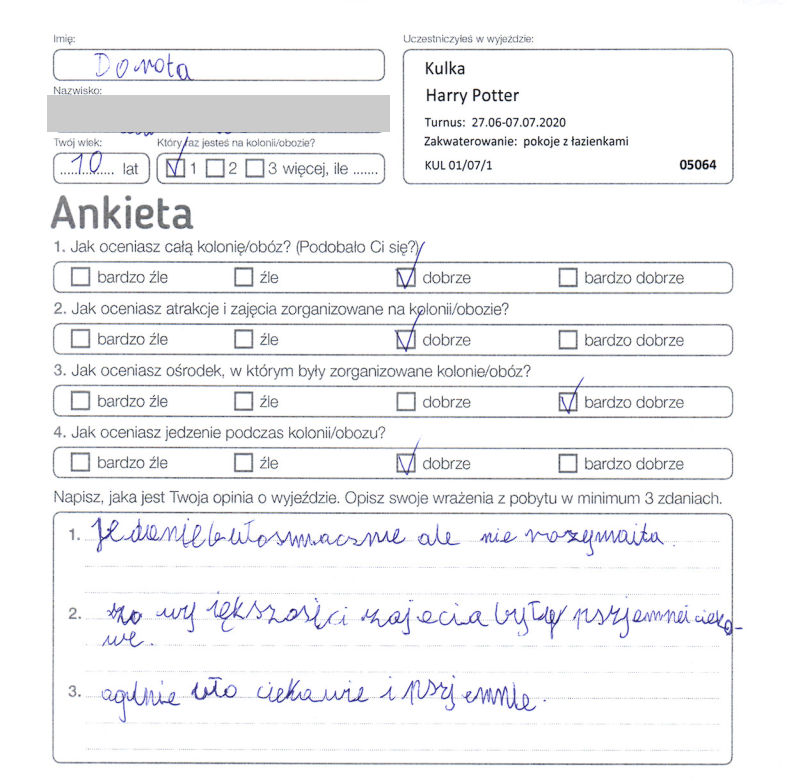 Imię:
Dorota
Uczestniczyłeś w wyjeździe:
Kulka
Harry Potter
Turnus: 27.06-07.07.2020
Zakwaterowanie: pokoje z łazienkami
KUL 01/07/1 05064
Nazwisko:
Twój wiek:
10 lat
Który raz jesteś na kolonii/obozie?
1 2 3 więcej, ile .......
Ankieta
1. Jak oceniasz całą kolonię/obóz? (Podobało Ci się?)
bardzo źle źle dobrze bardzo dobrze
2. Jak oceniasz atrakcje i zajęcia zorganizowane na kolonii/obozie?
bardzo źle źle dobrze bardzo dobrze
3. Jak oceniasz ośrodek, w którym były zorganizowane kolonie/obóz?
bardzo źle źle dobrze bardzo dobrze
4. Jak oceniasz jedzenie podczas kolonii/obozu?
bardzo źle źle dobrze bardzo dobrze
Napisz, jaka jest Twoja opinia o wyjeździe. Opisz swoje wrażenia z pobytu w minimum 3 zdaniach.
1. ale nie
2. wy iększości zajecia były pszjemne i cieko-
we.
3. ciekawie i pszjemnie.